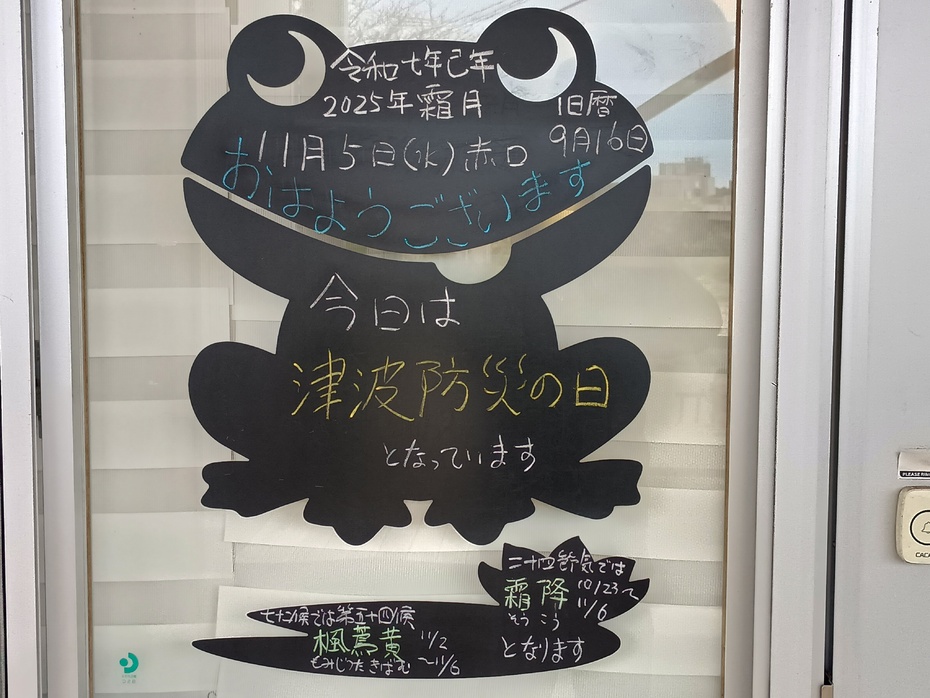 令和七年己年
2025年霜月
旧暦
9月16日
11月5日(水)赤口
おはようございます
今日は
津波防災の日
となっています
二十四節気では
霜降 10/23〜11/6
そうこう
となります
七十二候では第五十四候
楓蔦黄 11/2〜11/6
もみじつたきばむ
PLEASE RING